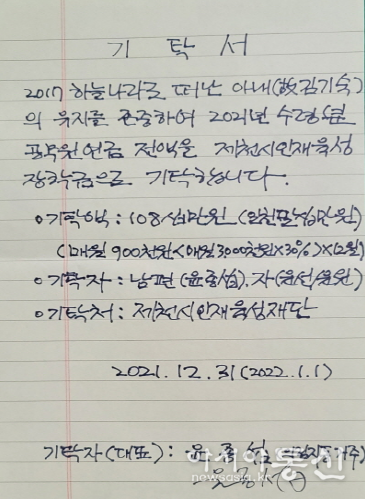 기 탁 서
2017 하늘나라로 떠난 아내(故김기숙)
의 유지를 존중하여 2021년 수령한
공무원연금 전액을 제천시인재육성
장학금으로 기탁합니다.
○기탁액 : 108십만원 (일천팔십만원)
(매월 900천원<매월3000천원×30%>×12월)
○기탁자 : 남편(윤종섭). 자(윤선
○기탁처 : 제천시인재육성재단
2021. 12. 31 (2022. 1. 1)
기탁자(대표) : 윤 종 섭
아시아통신
newsasia.kr